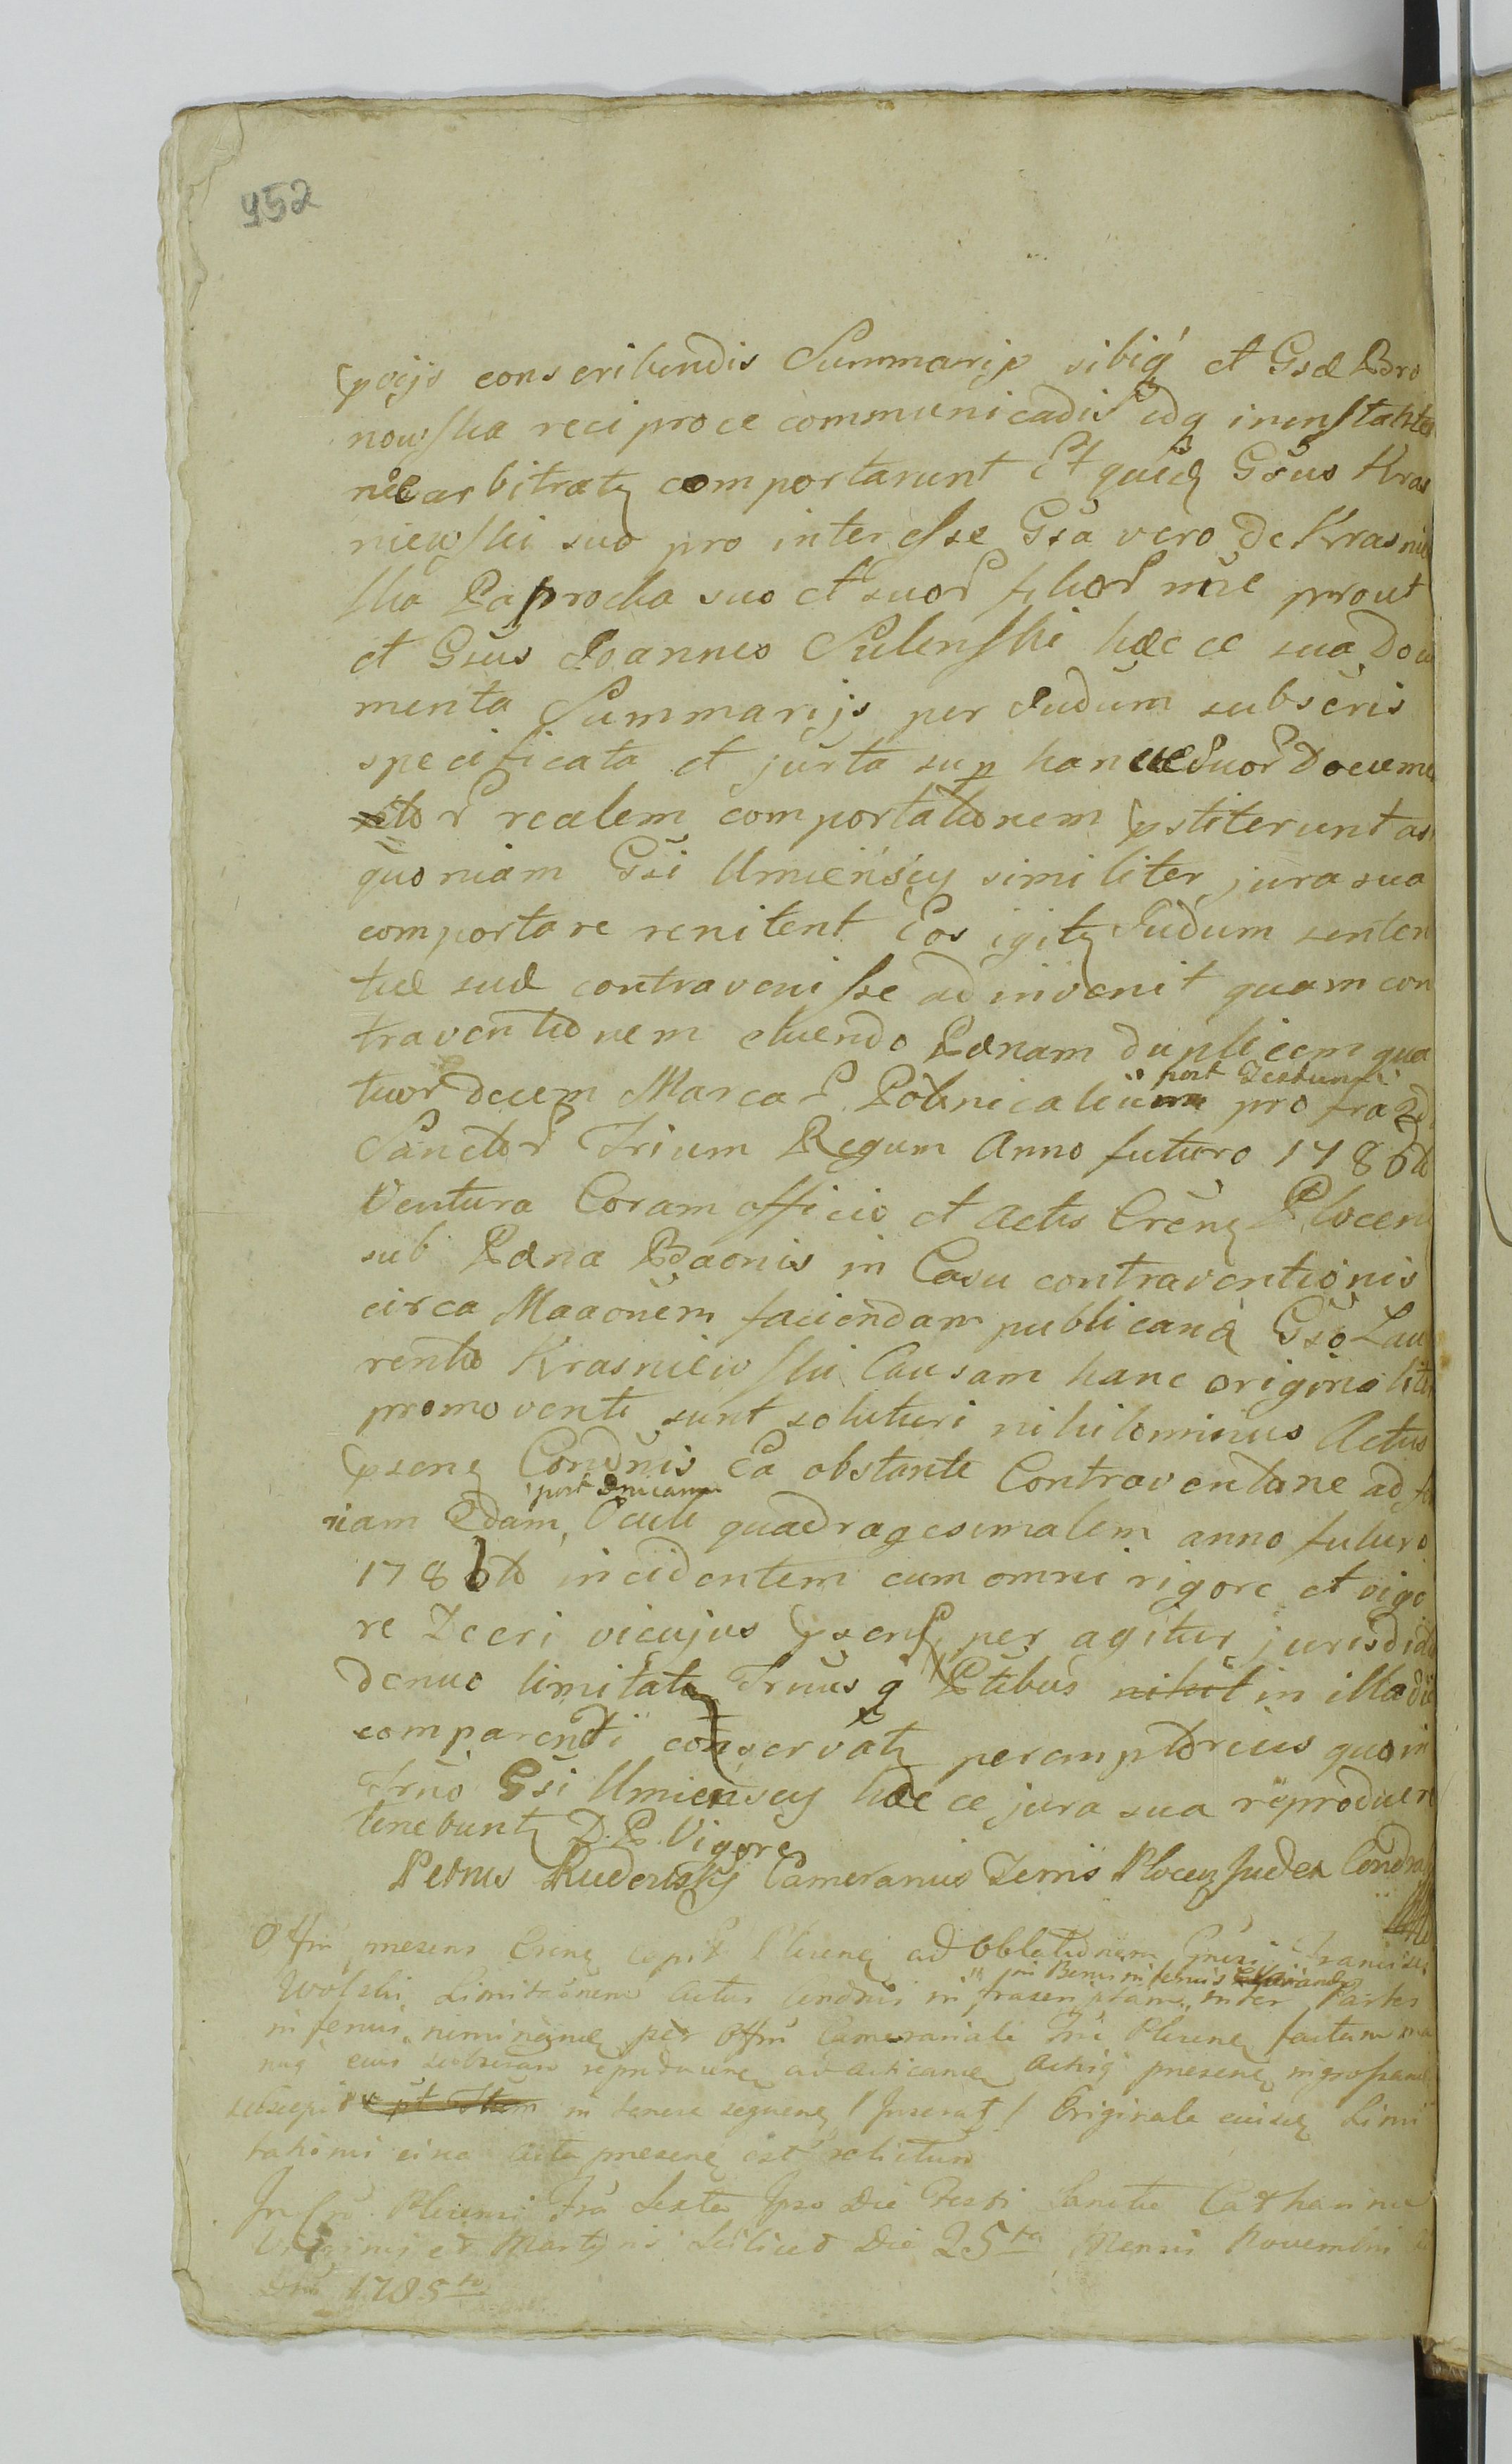 952
pcijs conscribendis Summarijs sibiq́ et Gsæ Bro
nowska reciproce communicadis idq instanter
nec arbitratq comportarunt Et quidq Gsus Kras
niewski suo pro interesse Gsa vero de Krasnie
ska Paprocka suo et suor filior nōie prout
et Gsus Joannes Sulenski hæcce sua Docu
menta Summarijs per Judum subscris
specificata et jurta sup hancce suor Docume
ntor realem comportationem pstiterunt as
quoniam Gsi Umieńscy similiter jura sua
comportare renitent Eos igitq Judum senten
tiæ suæ contravenisse adinvenit quam con
traventionem eluendo Pænam duplicem qua
tuordecem Marcar Polnicaliūm pro fra 2da
post Festum
Sanctor Trium Regum Anno futuro 1786to
Ventura Coram officio et Actis Crēnq Plocen
sub Pæna Baonis in Casu contraventionis
circa Maaonem faciendam publicana Gso Lau
rentio Krasniewski Causam hanc originaliter
promoventi sunt soluturi nihilominus Actus
psenq Condnis Ea obstante Contraventane ad fe
riam 2dam Oculi quadragesimalem anno futuro
post Dnicam
1786to incidentem cum omni rigore et vigo
re Decri vicujus psens per agitur jurisdidto
denuo limitatq Trnus q Ptibus nihil in illa die
comparendi conservatq peremptorius quo in
Trno Gsi Umieńscy hæcce jura sua reproducere
tenebuntq D. P. Vigore
Petrus Rudowsky Camerarius Terris Plocen Judex Cond
Offm presens Crenq cepit Plocenq ad Oblationem Gnrosi Francisci
Wolski Limitaōnem Actus Condnis in frasen ptam inter Partes
in Bonis infenis
infenus nominanq per Offm Camerariale Tre Plocenq factam ma
nuq eius subscram reproducenq ad acticanq Actisq presenq ingrossanq
suscepit in tenore sequenq / Inserat / Originale eiusq Limi
tationis circa Acta presenq est relictum
In Cro Plocensi Fra Sexta Ipso Die Festi Sanctæ Catharinæ
Virginis et Martyris Scilicet Die 25ta Mensis Novembris
Dni 1785to